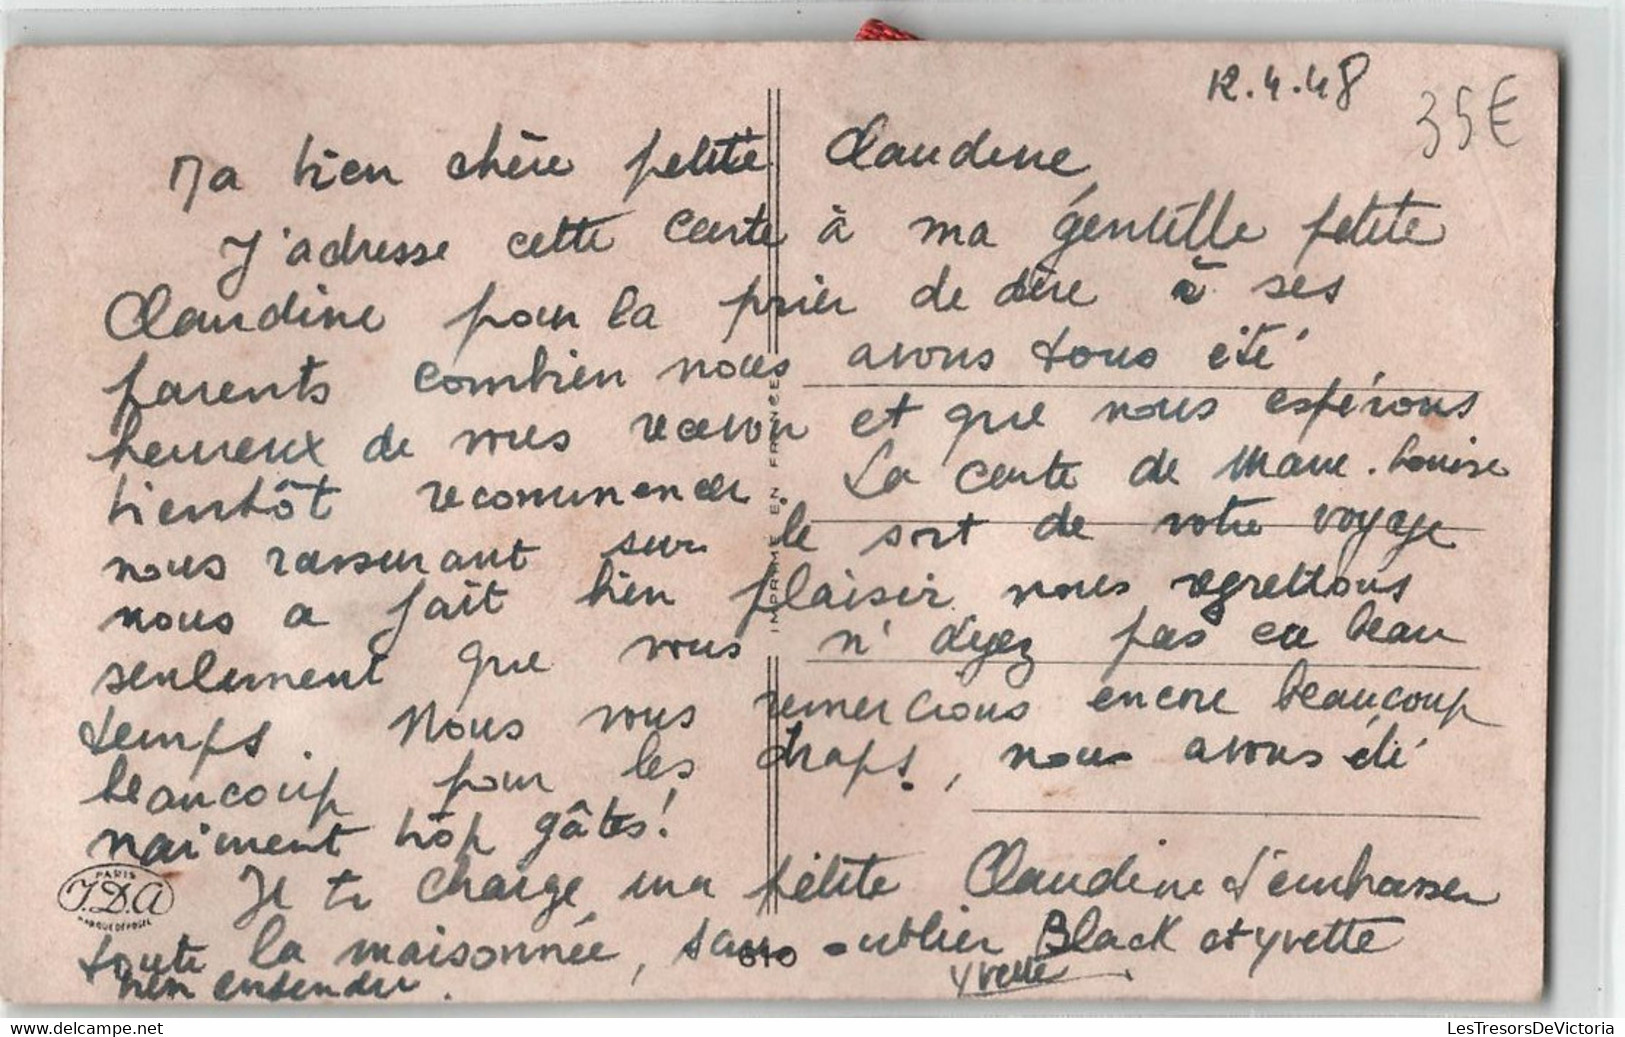 12.4.48
35€
Ma bien chère petite Claudine,
J'adresse cette carte à ma gentille petite
Claudine pour la prier de dire à ses
parents combien nous avons tous été
heureux de vous recevoir et que nous espérons
bientôt recommencer. La carte de Marie-Louise
nous rassurant sur le sort de votre voyage
nous a fait bien plaisir. nous regrettons
seulement que vous n'ayez pas eu beau
temps. Nous vous remercions encore beaucoup
beaucoup pour les draps, nous avons été
vraiment trop gâtés!
Je te charge, ma petite Claudine d'embrasser
toute la maisonnée, sans oublier Black et yvette
bien entendu.
yvette
IMPRIMÉ EN FRANCE
PARIS
J.D.A
MARQUE DÉPOSÉE
610
www.delcampe.net
LesTresorsDeVictoria